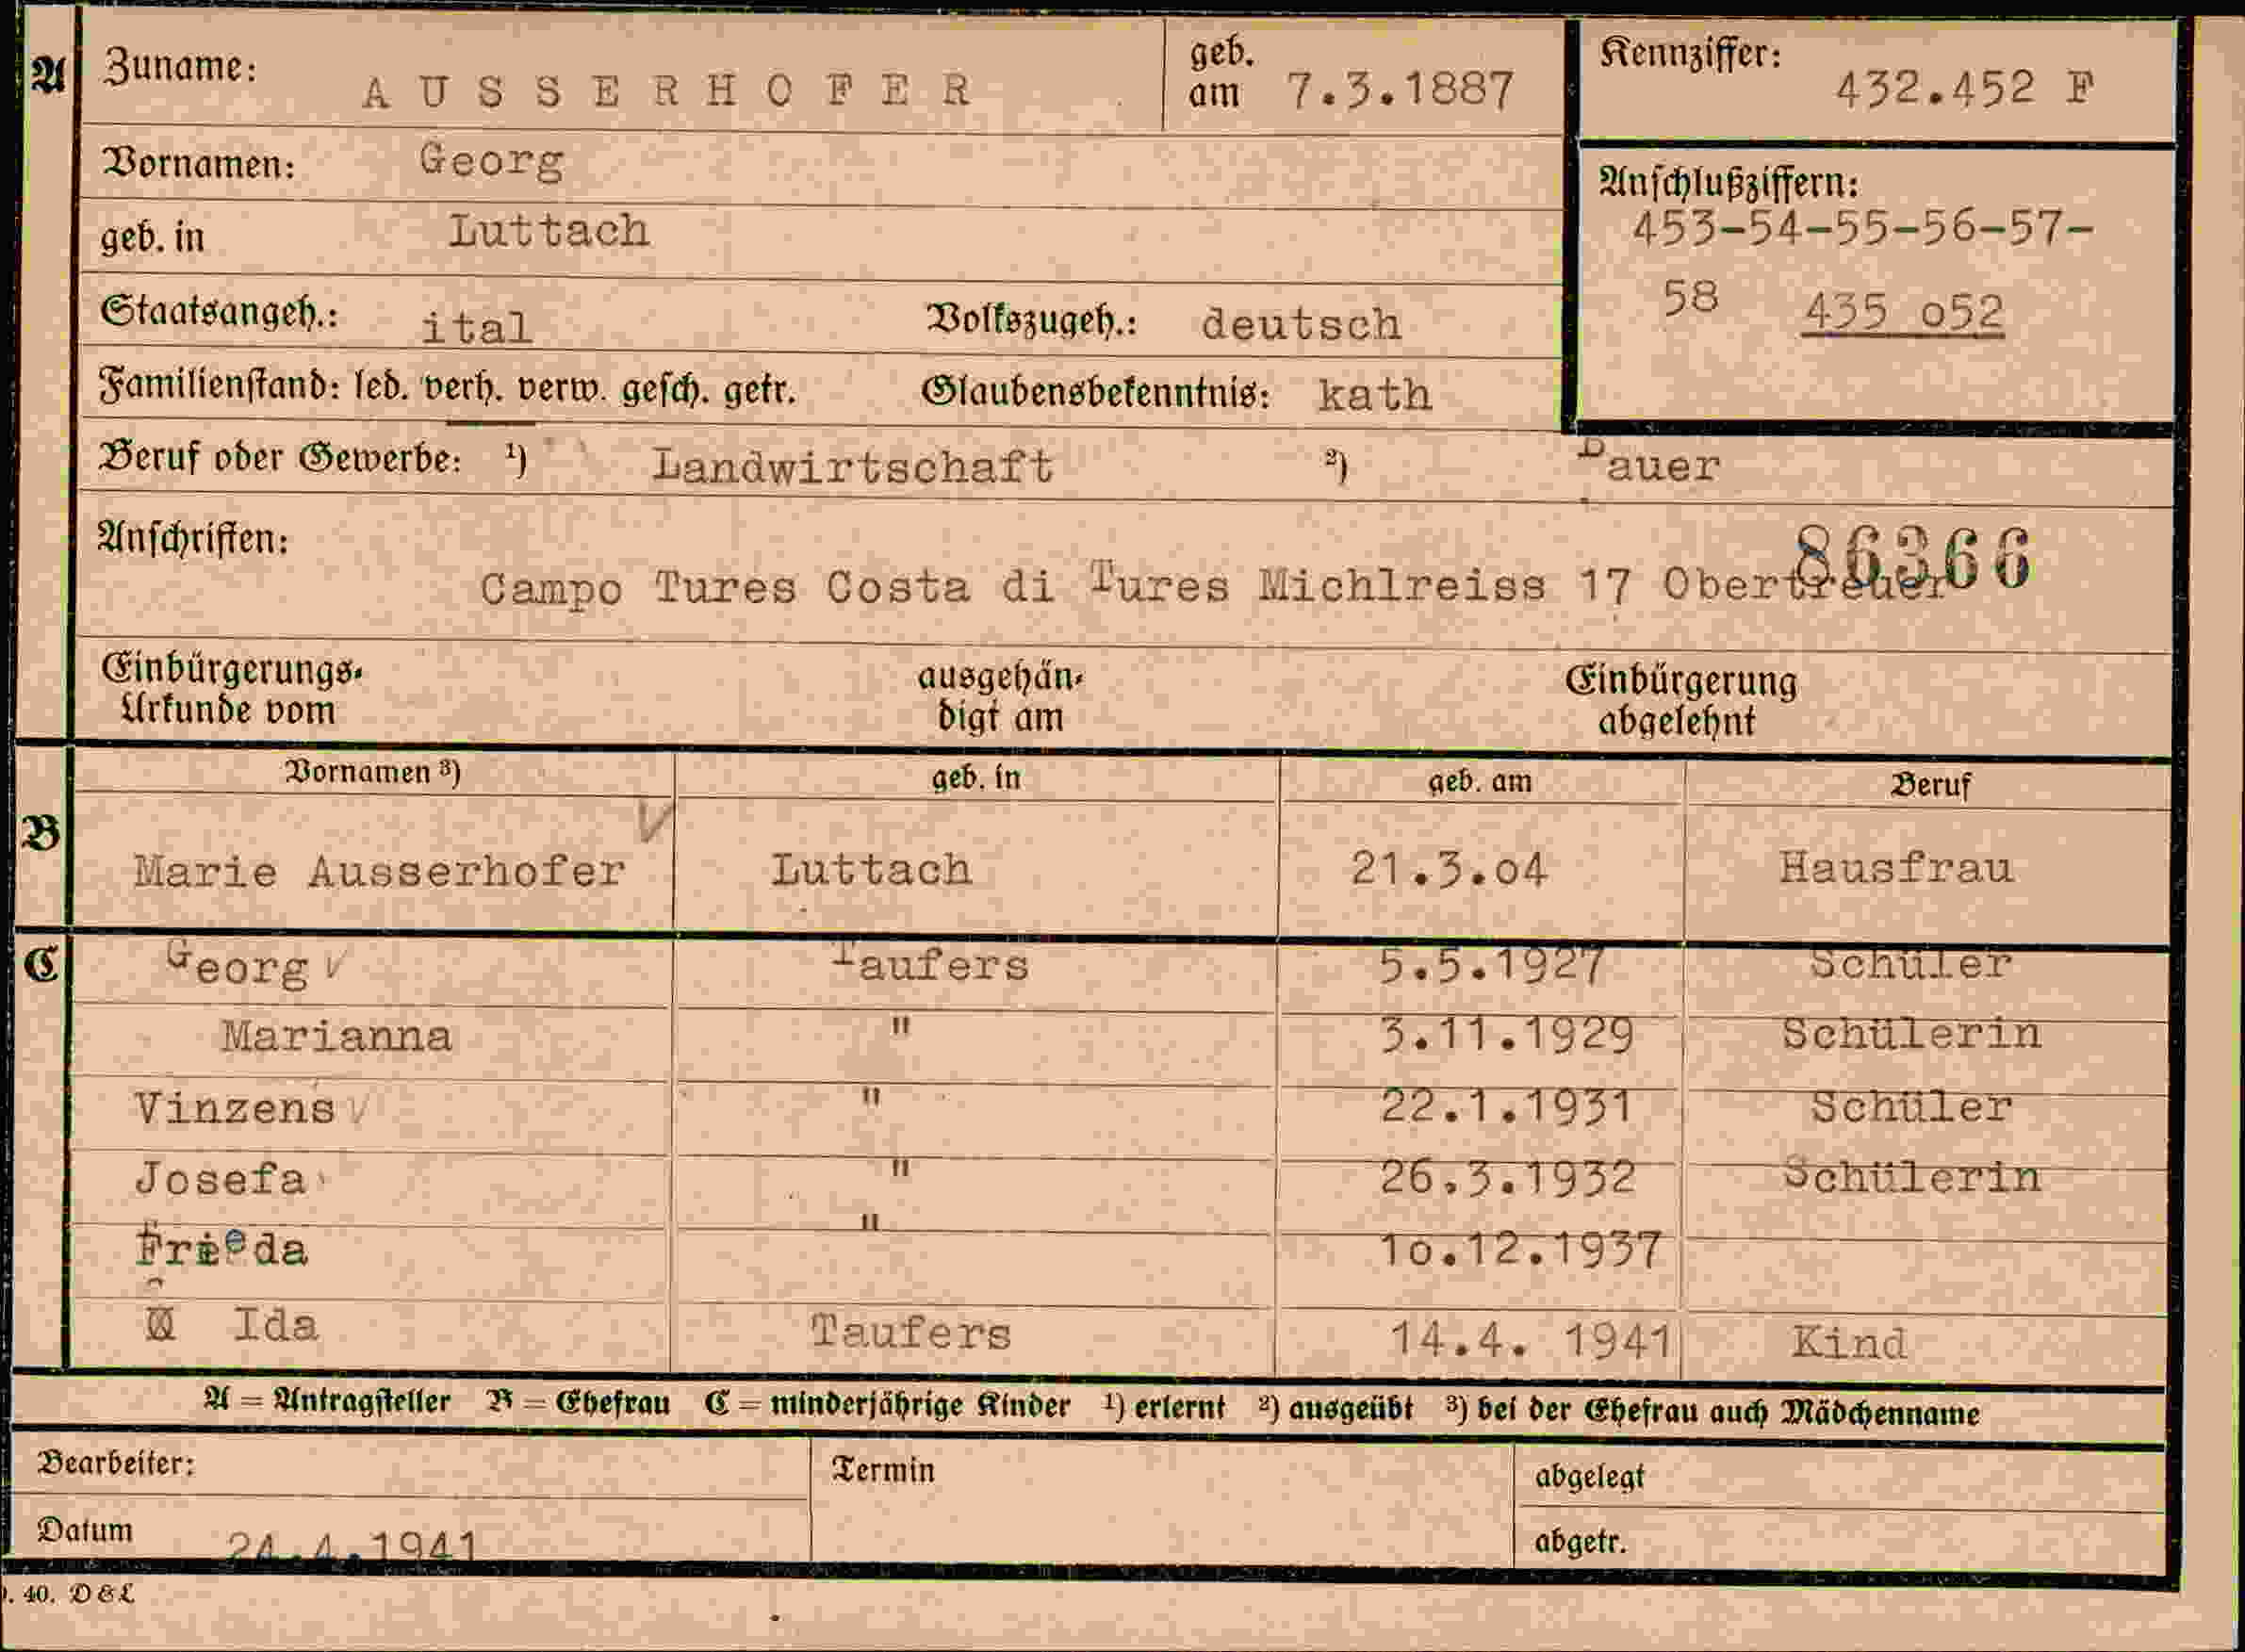 A Zuname: AUSSERHOFER geb. am 7.3.1887 Kennziffer: 432.452 F
Vornamen: Georg
Anschlußziffern:
453-54-55-56-57-
geb. in Luttach
58 435 o52
Staatsangeh.: ital Volkszugeh.: deutsch
Familienstand: led. verh. verw. gesch. getr. Glaubensbekenntnis: kath
Beruf oder Gewerbe: ¹) Landwirtschaft ²) Bauer
Anschriften: 86366
Campo Tures Costa di Tures Michlreiss 17 Obertreuer
Einbürgerungs-Urkunde vom ausgehän-digt am Einbürgerung abgelehnt
Vornamen ³) geb. in geb. am Beruf
B Marie Ausserhofer V Luttach 21.3.o4 Hausfrau
C Georg V Taufers 5.5.1927 Schüler
Marianna " 3.11.1929 Schülerin
Vinzens V " 22.1.1931 Schüler
Josefa " 26.3.1932 Schülerin
Frieda " 1o.12.1937
Ida Taufers 14.4. 1941 Kind
A = Antragsteller B = Ehefrau C = minderjährige Kinder ¹) erlernt ²) ausgeübt ³) bei der Ehefrau auch Mädchenname
Bearbeiter: Termin abgelegt
Datum 24.4.1941 abgetr.
. 40. D & L